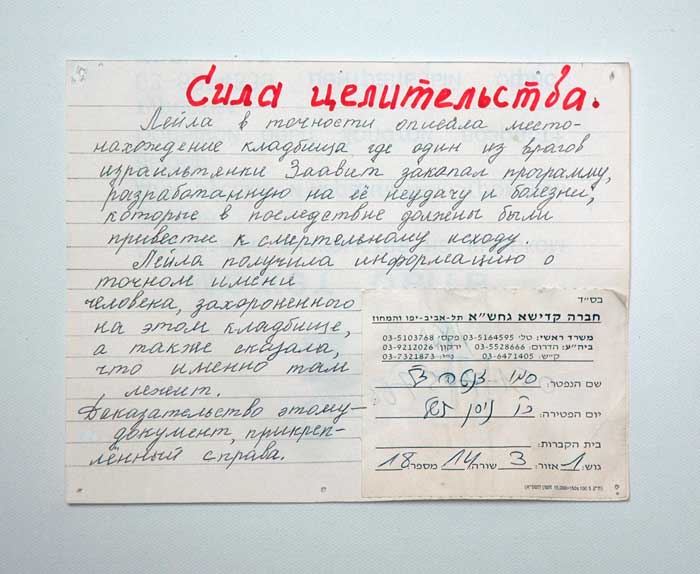 Сила целительства.
Лейла в точности описала место-
нахождение кладбища где один из врагов
израильтянки Заавит закопал программу,
разработанную на её неудачу и болезни,
которые в последствие должены были
привести к смертельному исходу.
Лейла получила информацию о
точном имени
человека, захороненного
на этом кладбище,
а также сказала,
что именно там
лежит.
Доказательство этому-
документ, прикреп-
лённый справа.
בס"ד
חברה קדישא גחש"א תל-אביב-יפו והמחוז
משרד ראשי: טל׳ 03-5164595 פקס׳ 03-5103768
ביה"ע: הדרום: 03-5528666 ירקון: 03-9212026
ק"ש: 03-6471405 03-7321873
שם הנפטר:
יום הפטירה: ניסן
בית הקברות:
גוש: 1 אזור: 3 שורה: 14 מספר: 18